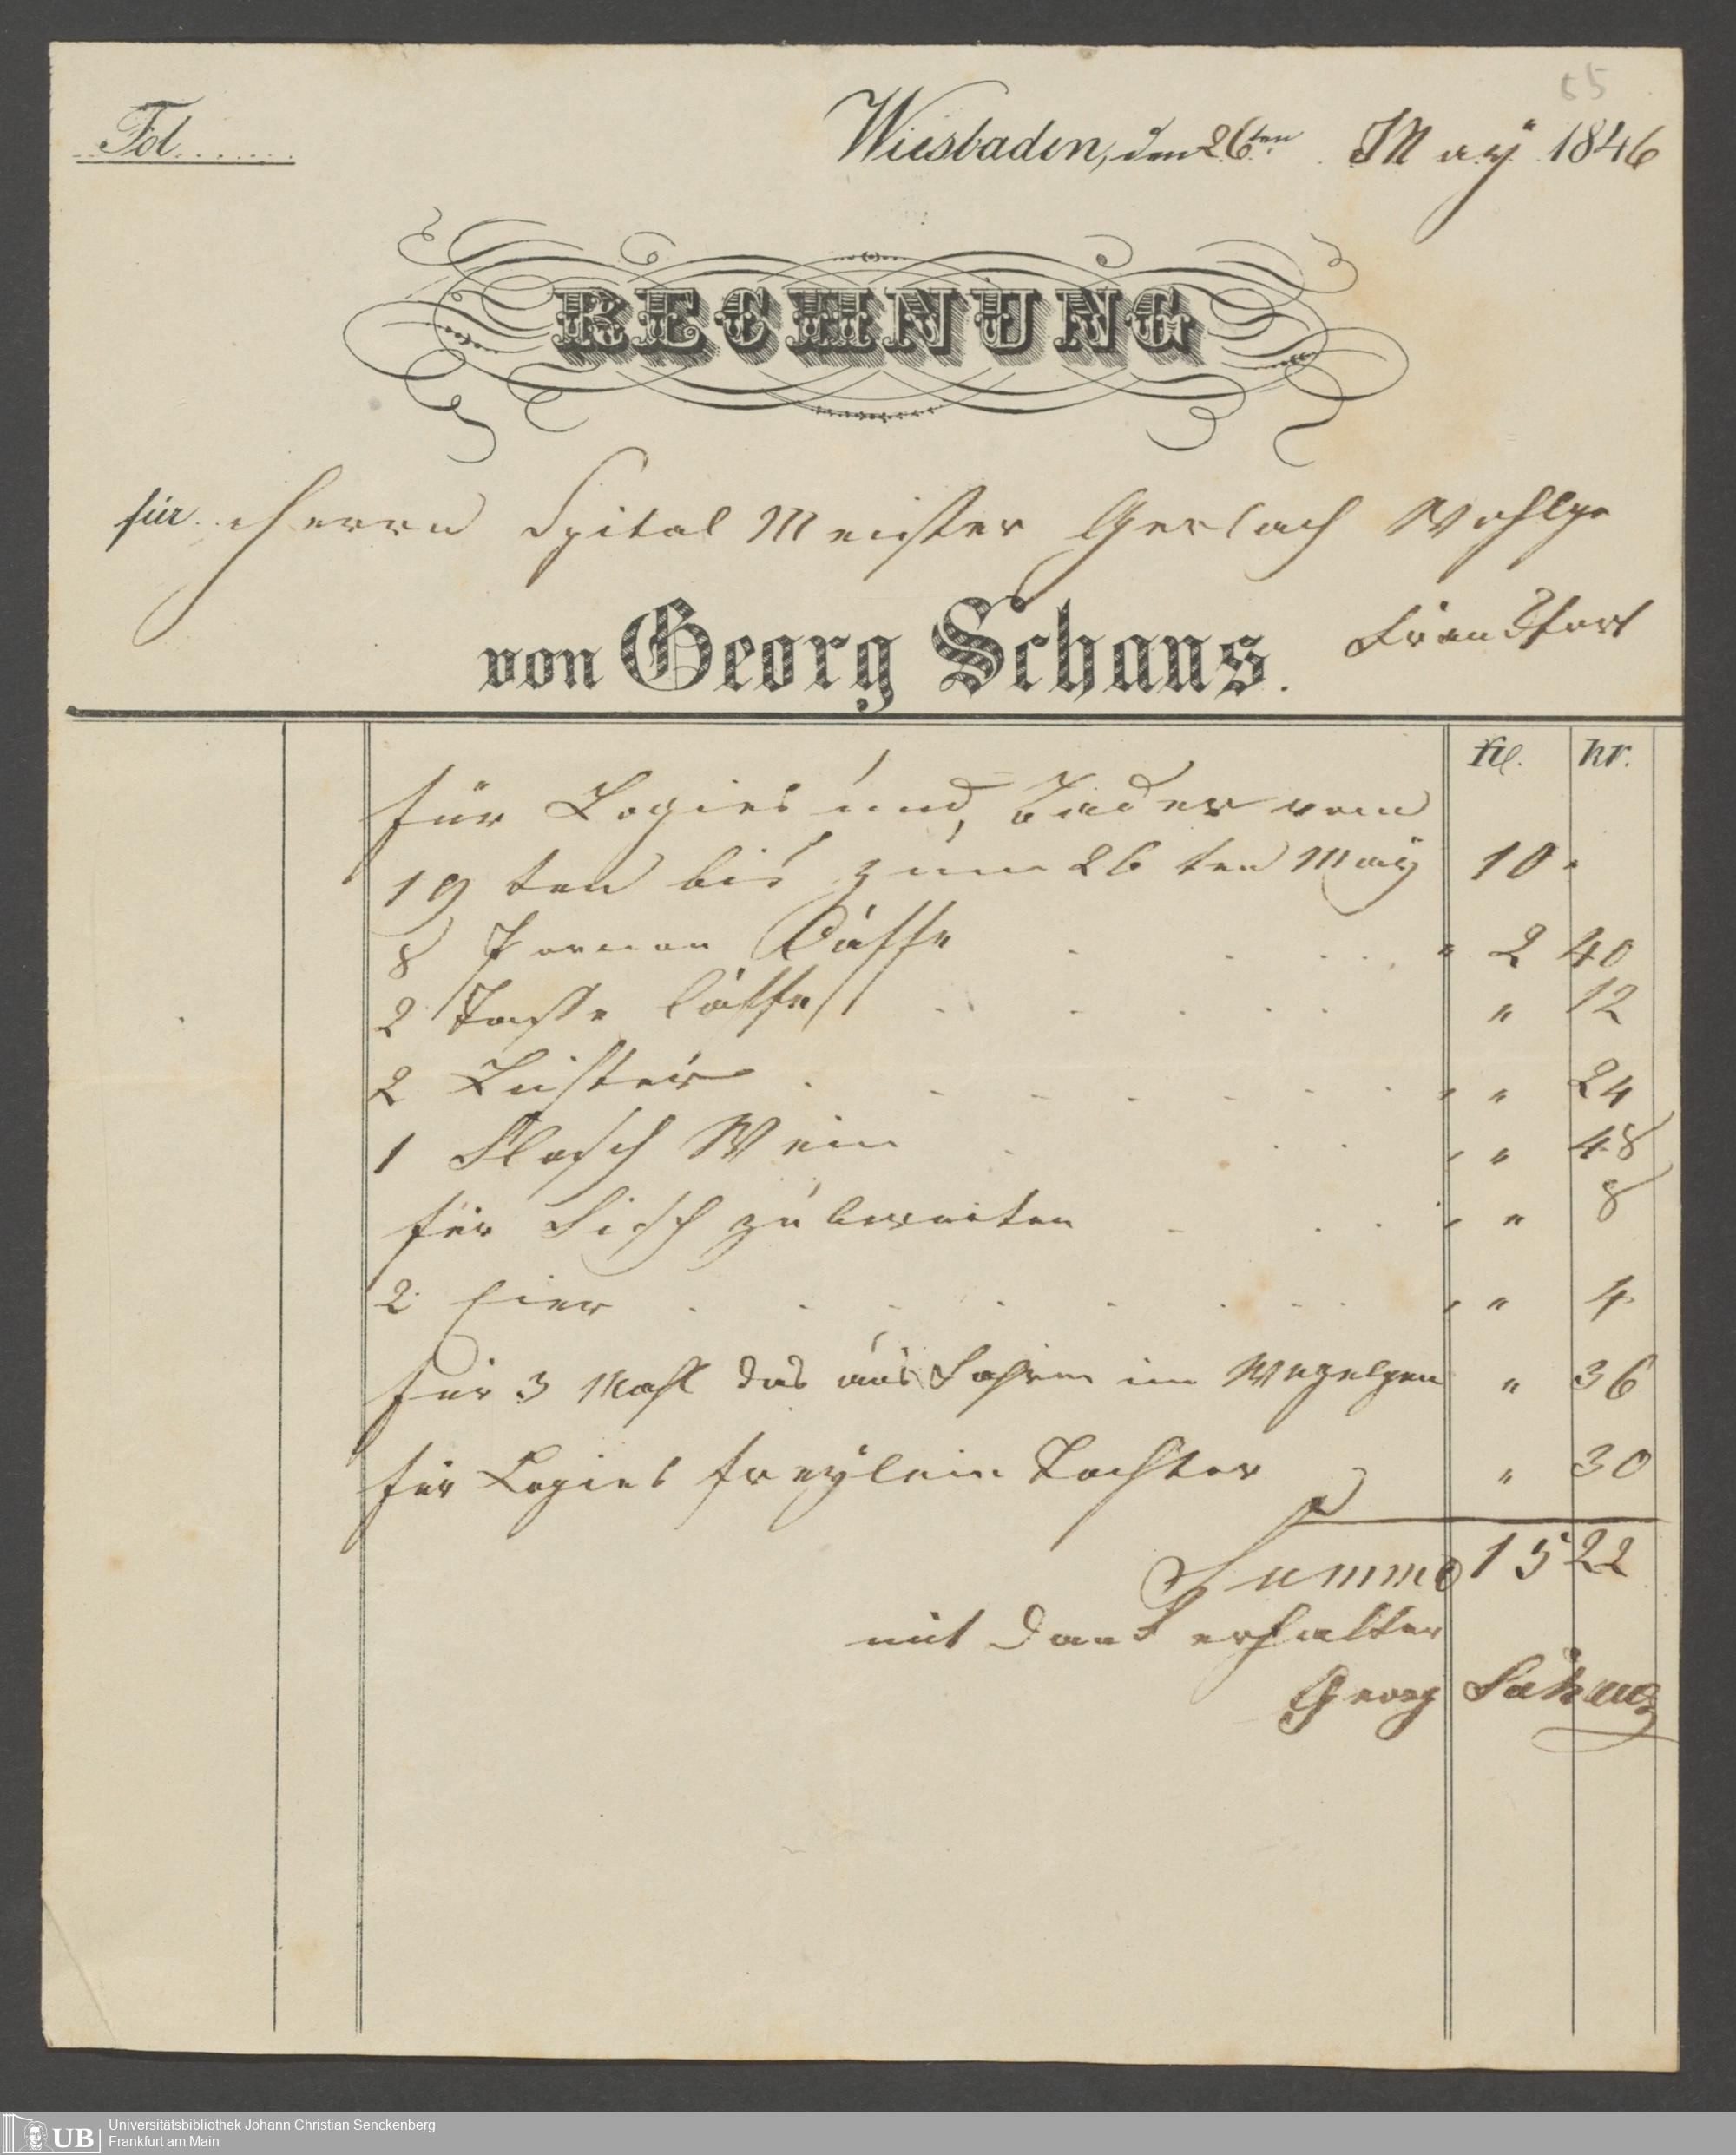 55
Fol.......
Wiesbaden, den 26ten May 1846
RECHNUNG
für Herrn Spital Meister Gerlach Wohlge
Frankfort
von Georg Schaus.
fl. kr.
für Logies und Bäder vom
19 ten bis zum 26 ten May 10 "
8 Porzion Caffe " 2 40
2 Tasse Caffe " 12
2 " " 24
1 Flasch Wein " " 48
für Fisch zubereiten " " 8
2 Eier " " 4
für 3 Mahl das aus Fahren im " 36
für Logies freylein Tochter " 30
Summa 15 22
mit Dank erhalten
Georg Schaus
UB
Universitätsbibliothek Johann Christian Senckenberg
Frankfurt am Main